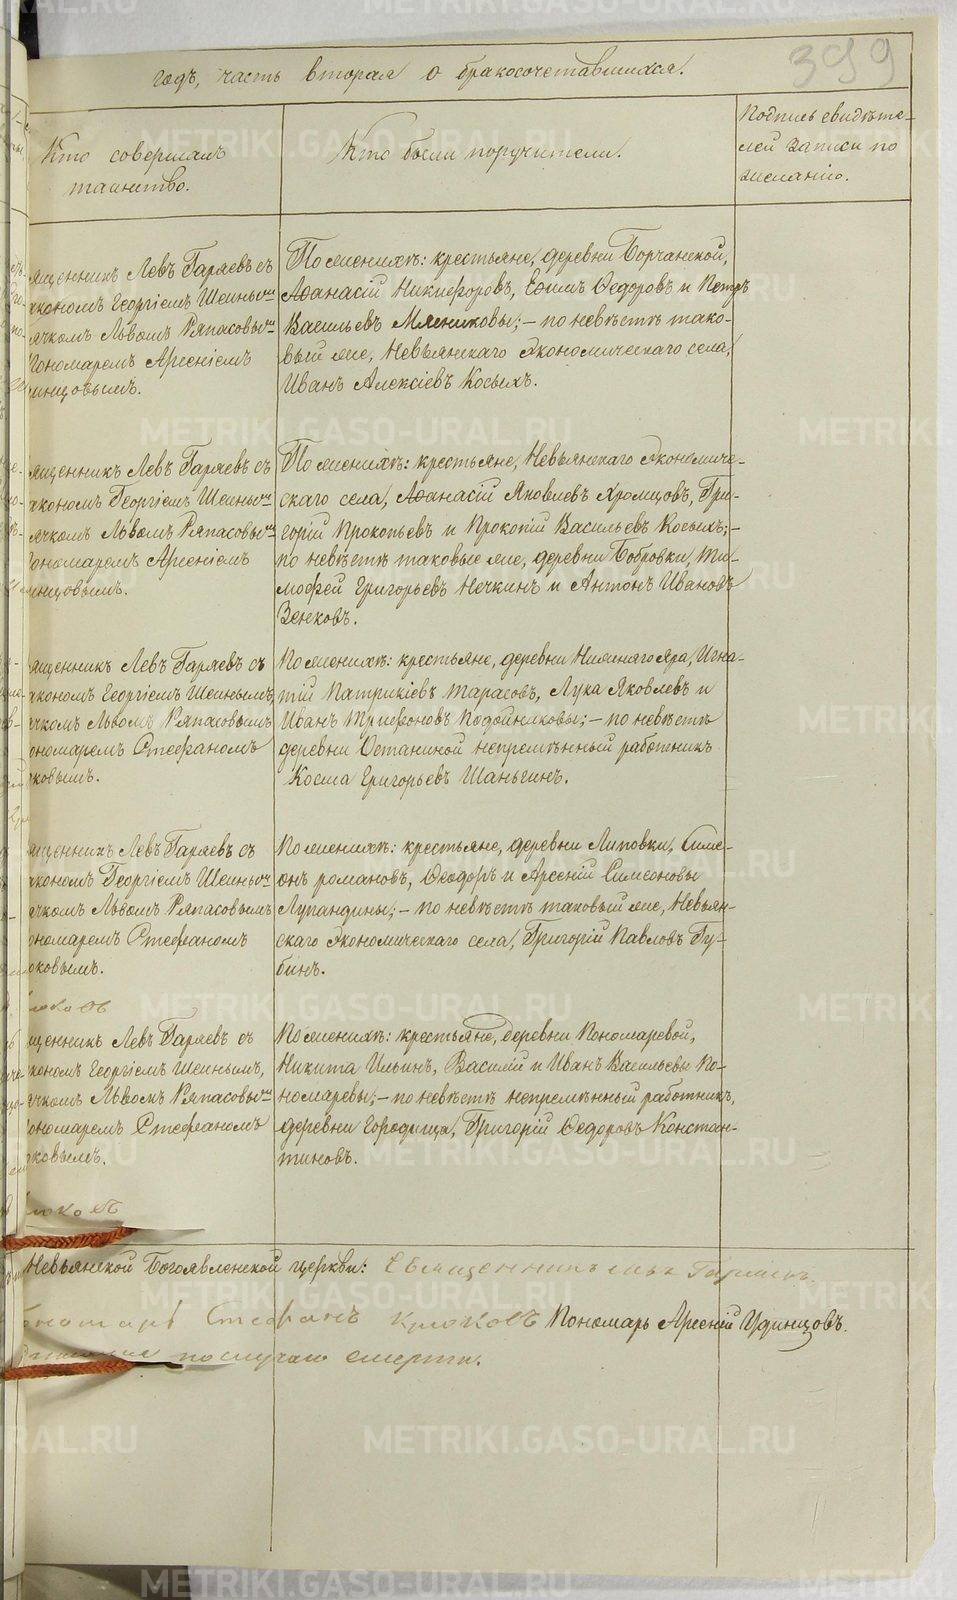 399
годъ, часть вторая о бракосочетавшихся.
Кто совершалъ
таинство.
Кто были поручители.
Подпись свидѣте-
лей записи по
желанію.
ященникъ Левъ Гаряевъ съ
акономъ Георгіемъ Шеинымъ
ячкомъ Львомъ Ряпасовымъ
Пономаремъ Арсеніемъ
инцовымъ.
По женихѣ: крестьяне, деревни Борчанской,
Аѳанасій Никифоровъ, Ефимъ Ѳедоровъ и Петръ
Васильевъ Мясниковы; – по невѣстѣ тако-
вый же, Невьянскаго Экономическаго села,
Иванъ Алексіевъ Косыхъ.
ященникъ Левъ Гаряевъ съ
акономъ Георгіемъ Шеинымъ
ячкомъ Львомъ Ряпасовымъ
Пономаремъ Арсеніемъ
инцовымъ.
По женихѣ: крестьяне, Невьянскаго Экономиче-
скаго села, Аѳанасій Яковлевъ Хромцовъ, Гри-
горій Прокопьевъ и Прокопій Васильевъ Косыхъ; –
по невѣстѣ таковые же, деревни Бобровки, Ти-
мофей Григорьевъ Нечкинъ и Антонъ Ивановъ
Зенковъ.
ященникъ Левъ Гаряевъ съ
акономъ Георгіемъ Шеинымъ,
ячкомъ Львомъ Ряпасовымъ
ономаремъ Стефаномъ
ковымъ.
По женихѣ: крестьяне, деревни Нижняго Яра, Игна-
тій Патрикіевъ Тарасовъ, Лука Яковлевъ и
Иванъ Трифоновъ Подойниковы; – по невѣстѣ
деревни Останиной непремѣнный работникъ
Косма Григорьевъ Шаньгинъ.
ященникъ Левъ Гаряевъ съ
акономъ Георгіемъ Шеинымъ
ячкомъ Львомъ Ряпасовымъ
ономаремъ Стефаномъ
юковымъ.
По женихѣ: крестьяне, деревни Липовки, Симе-
онъ Романовъ, Ѳеодоръ и Арсеній Симеоновы
Лупандины; – по невѣстѣ таковый же, Невьян-
скаго Экономическаго села, Григорій Павловъ Гу-
бинъ.
люковъ
щенникъ Левъ Гаряевъ съ
акономъ Георгіемъ Шеинымъ,
ячкомъ Львомъ Ряпасовымъ
ономаремъ Стефаномъ
юковымъ.
По женихѣ: крестьяне, деревни Пономаревой,
Никита Ильинъ, Василій и Иванъ Васильевы По-
номаревы; – по невѣстѣ непремѣнный работникъ,
деревни Городища, Григорій Ѳедоровъ Констан-
тиновъ.
люковъ
Невьянской Богоявленской церкви: Священникъ Левъ Гаряевъ
ономарь Стефанъ Крюковъ Пономарь Арсеній Удинцовъ.
по случаю смерти.
METRIKI.GASO-URAL.RU